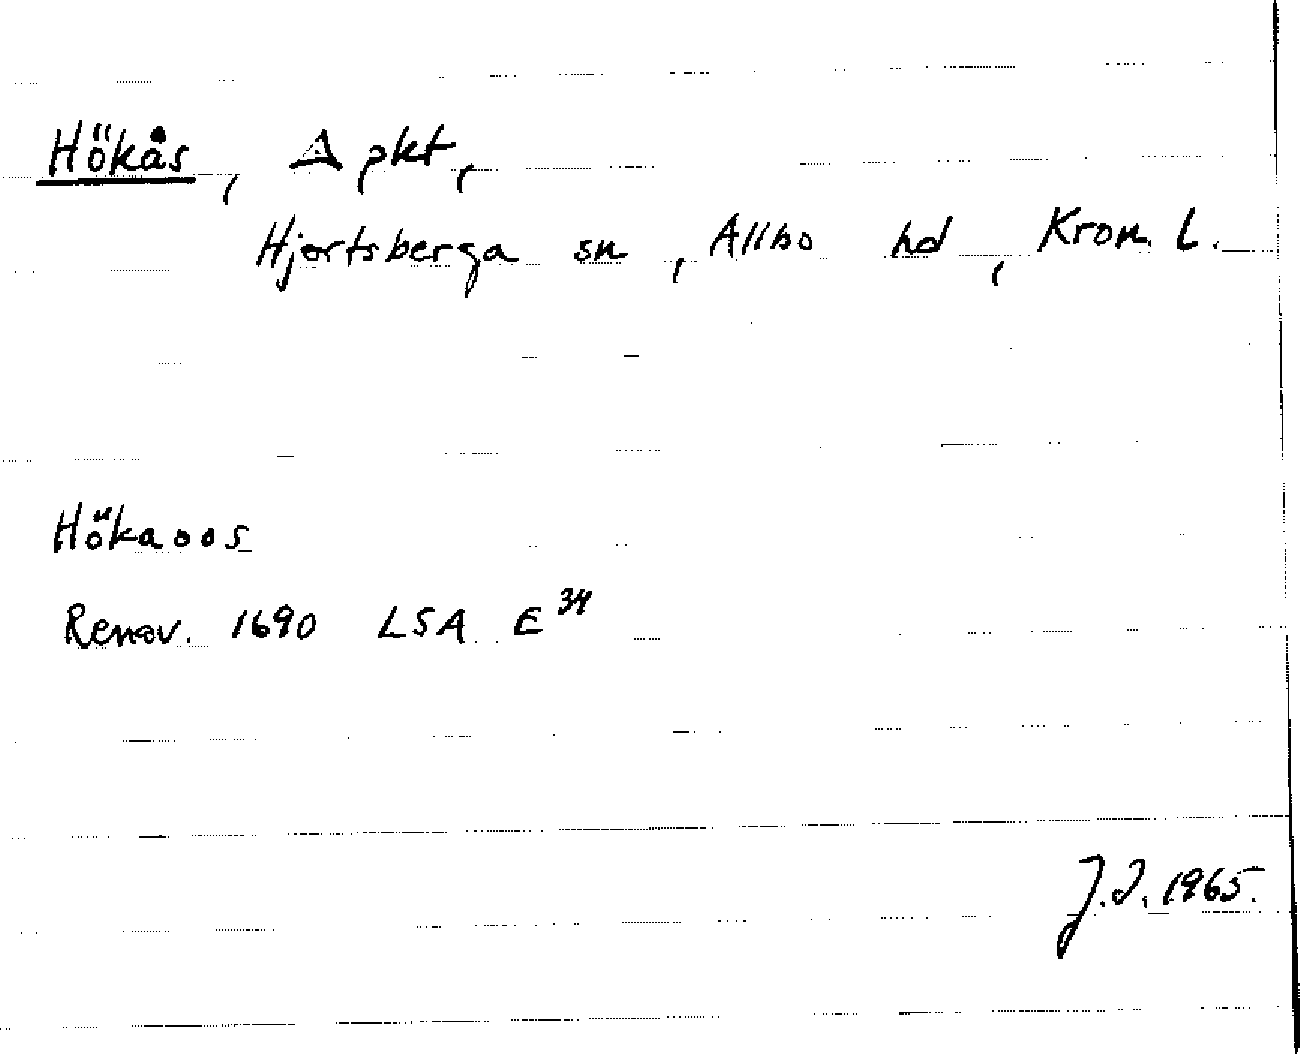 Hökås, Δ pkt,
Hjortsberga sn, Allbo hd, Kron. L.
Hökaoos
Renov. 1690 LSA E³⁴
J.I. 1965.